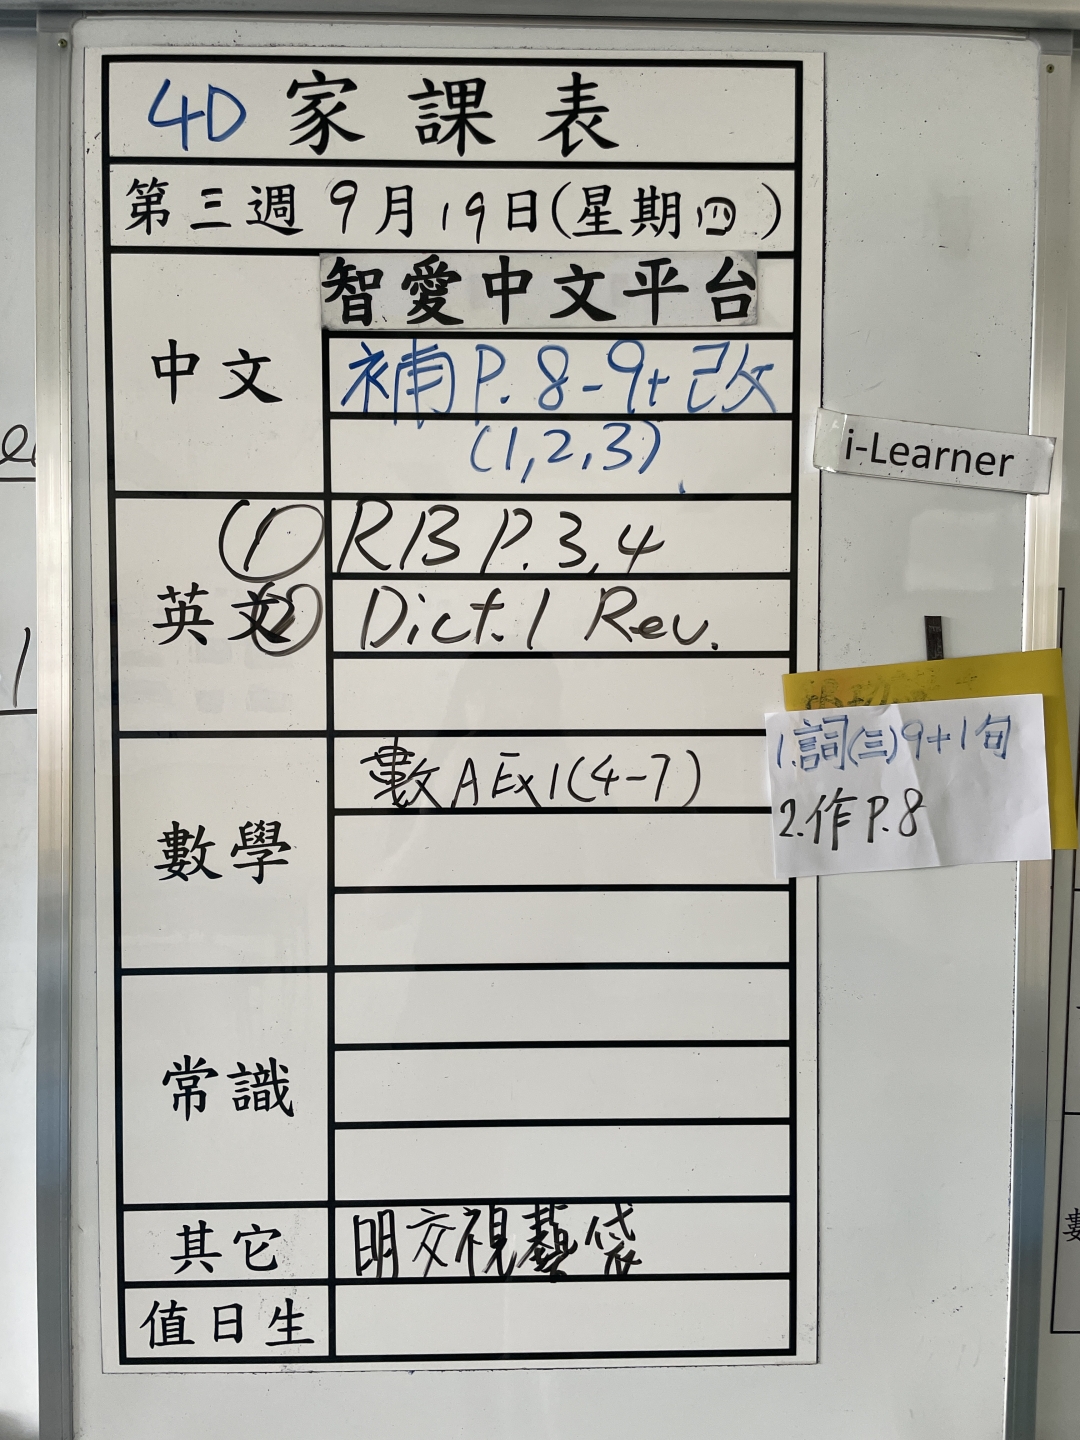 4D 家課表
第三週 9月19日(星期四)
中文
智愛中文平台
補 P. 8-9 + 改
(1,2,3)
i-Learner
英文
① RB P. 3, 4
② Dict. 1 Rev.
數學
數A Ex1(4-7)
1.詞(三)9+1句
2.作 P.8
常識
其它
明交視藝袋
值日生